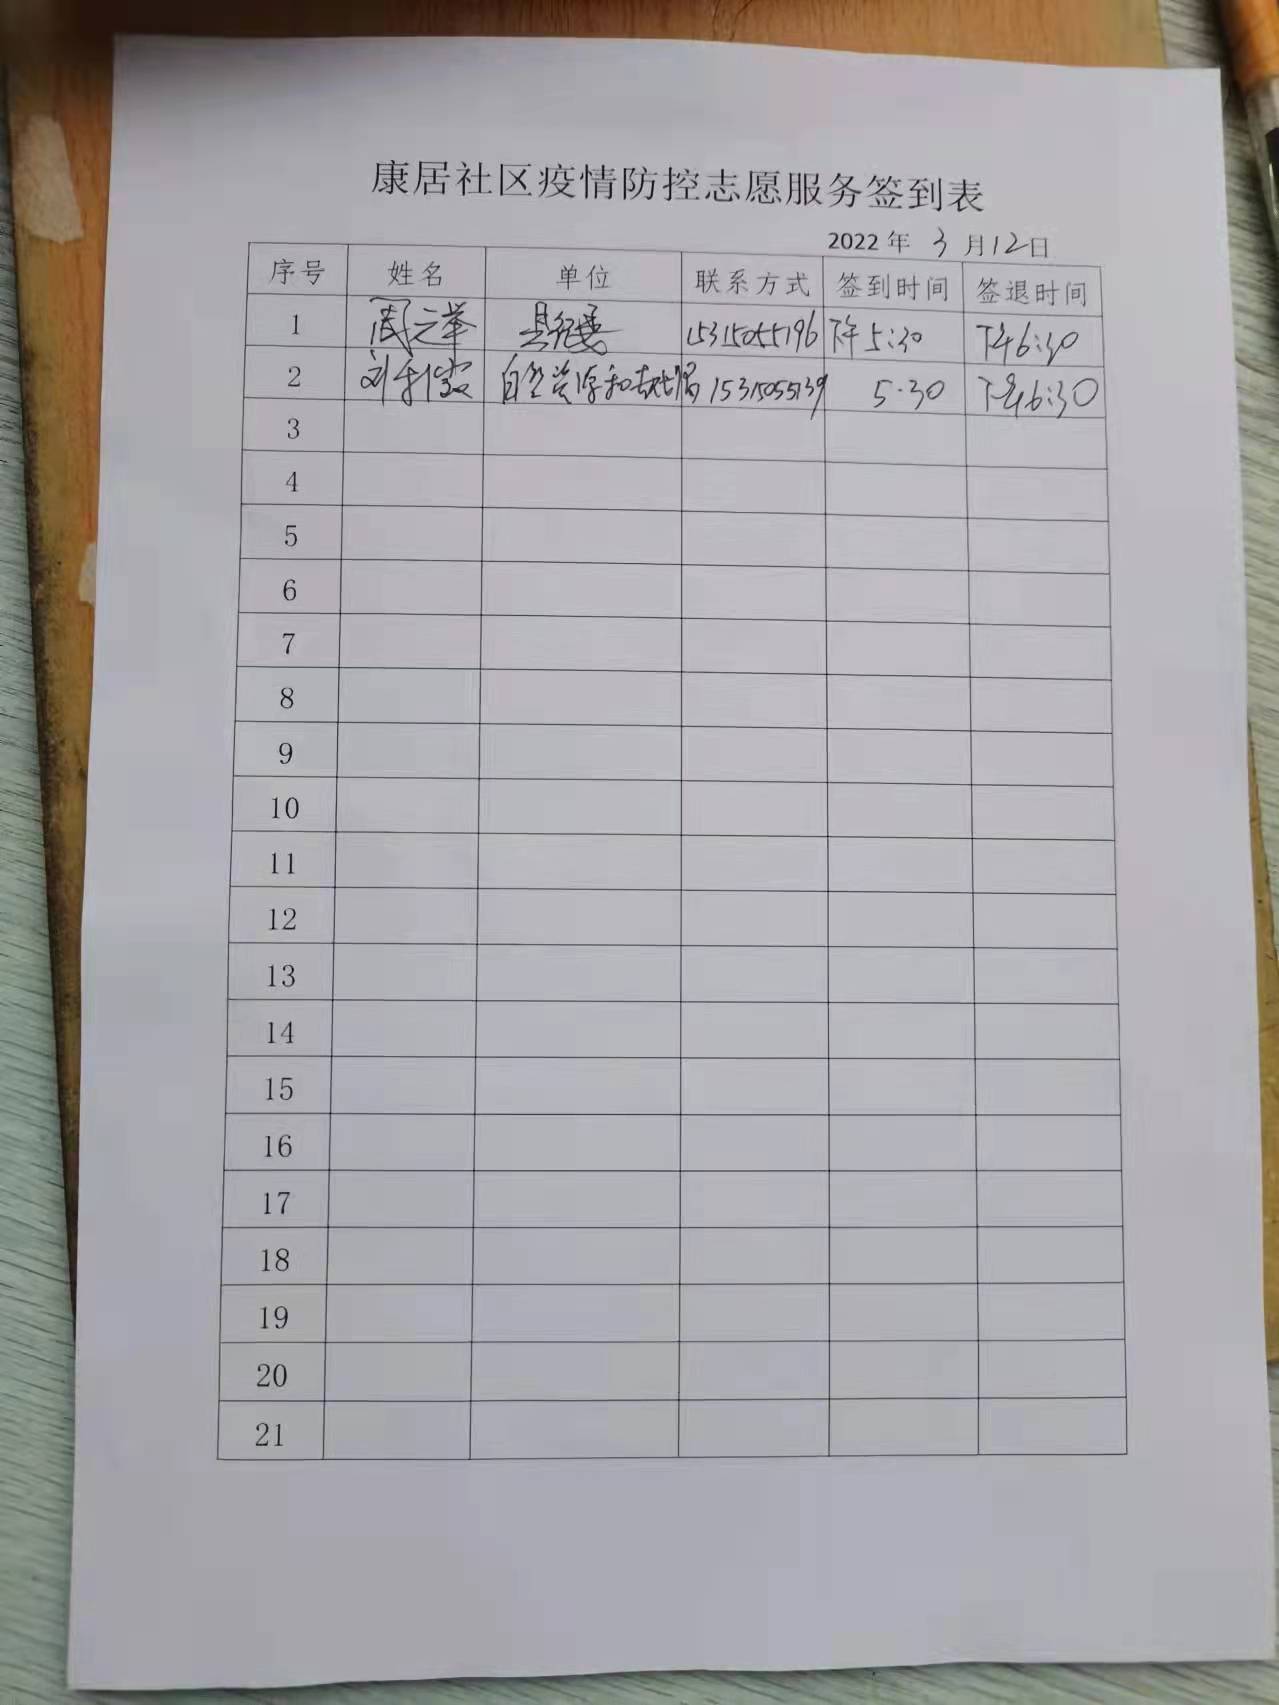 康居社区疫情防控志愿服务签到表
2022年 3 月12日
序号 姓名 单位 联系方式 签到时间 签退时间
1 周之举 县纪委 15315055196 下午5:30 下午6:30
2 刘 自然资源和规划局 15315055139 5:30 下午6:30
3
4
5
6
7
8
9
10
11
12
13
14
15
16
17
18
19
20
21